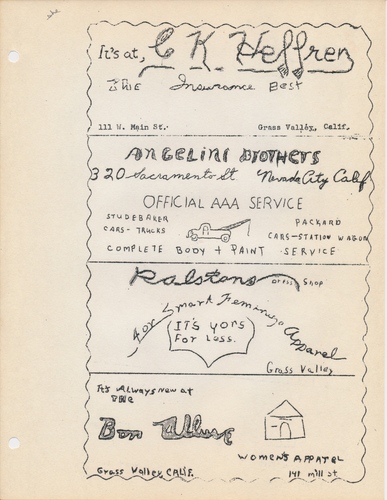 It's at, C K. Heffren
THE Insurance Best
111 W. Main St. Grass Valley, Calif.
ANGELINI BROTHERS
320 Sacramento St Nevada City Calif
OFFICIAL AAA SERVICE
STUDEBAKER PACKARD
CARS-TRUCKS CARS-STATION WAGON
COMPLETE BODY + PAINT SERVICE
Ralstons Dress Shop
for Smart Feminine Apparel
IT'S YORS
For Less.
Grass Valley
It's Always New at
THE
Bon Allure
WOMEN'S APPAREL
Grass Valley, CALIF. 141 mill st